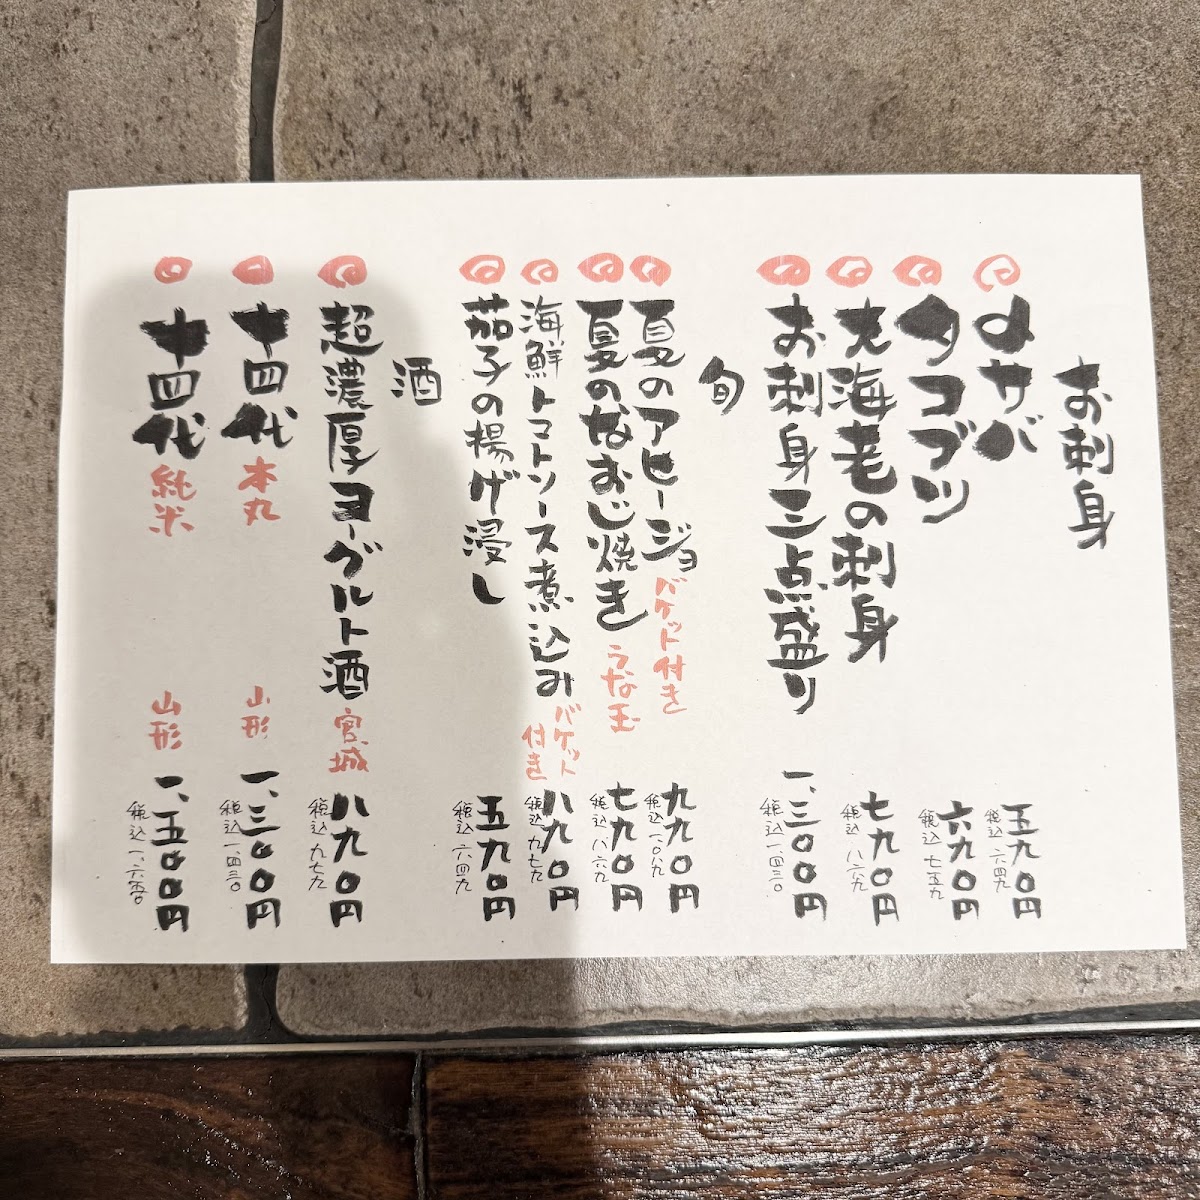 お刺身
〆サバ 五九〇円
税込 六四九
タコブツ 六九〇円
税込 七五九
大海老の刺身 七九〇円
税込 八六九
お刺身三点盛り 一、三〇〇円
税込 一、四三〇
旬
夏のアヒージョ バケット付き 九九〇円
税込 一、〇八九
夏のなおじ焼き うな玉 七九〇円
税込 八六九
海鮮トマトソース煮込み バケット付き 八九〇円
税込 九七九
茄子の揚げ浸し 五九〇円
税込 六四九
酒
超濃厚ヨーグルト酒 宮城 八九〇円
税込 九七九
十四代 本丸 山形 一、三〇〇円
税込 一、四三〇
十四代 純米 山形 一、五〇〇円
税込 一、六五〇